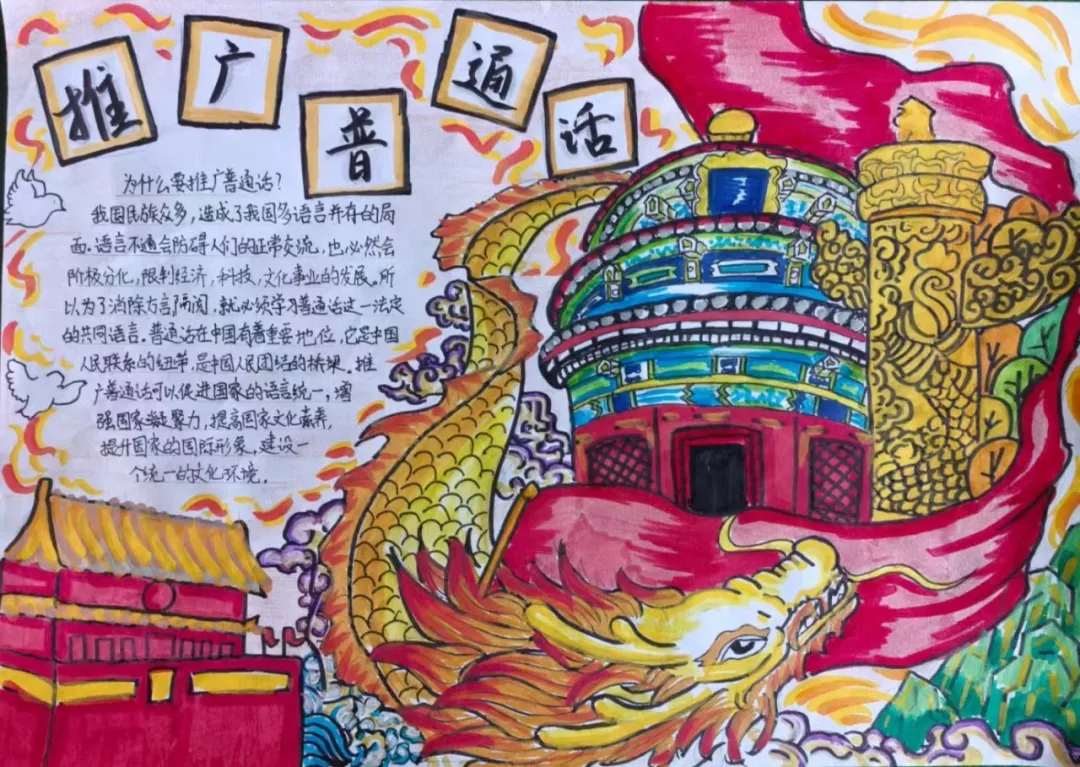 推广普通话
为什么要推广普通话?
我国民族众多,造成了我国多语言并存的局
面。语言不通会防碍人们的正常交流,也必然会
阶极分化,限制经济,科技,文化事业的发展。所
以为了消除方言隔阂,就必须学习普通话这一法定
的共同语言。普通话在中国有着重要地位,它是中国
人民联系的纽带,是中国人民团结的桥梁。推
广普通话可以促进国家的语言统一,增
强国家凝聚力,提高国家文化素养,
提升国家的国际形象,建设一
个统一的文化环境。